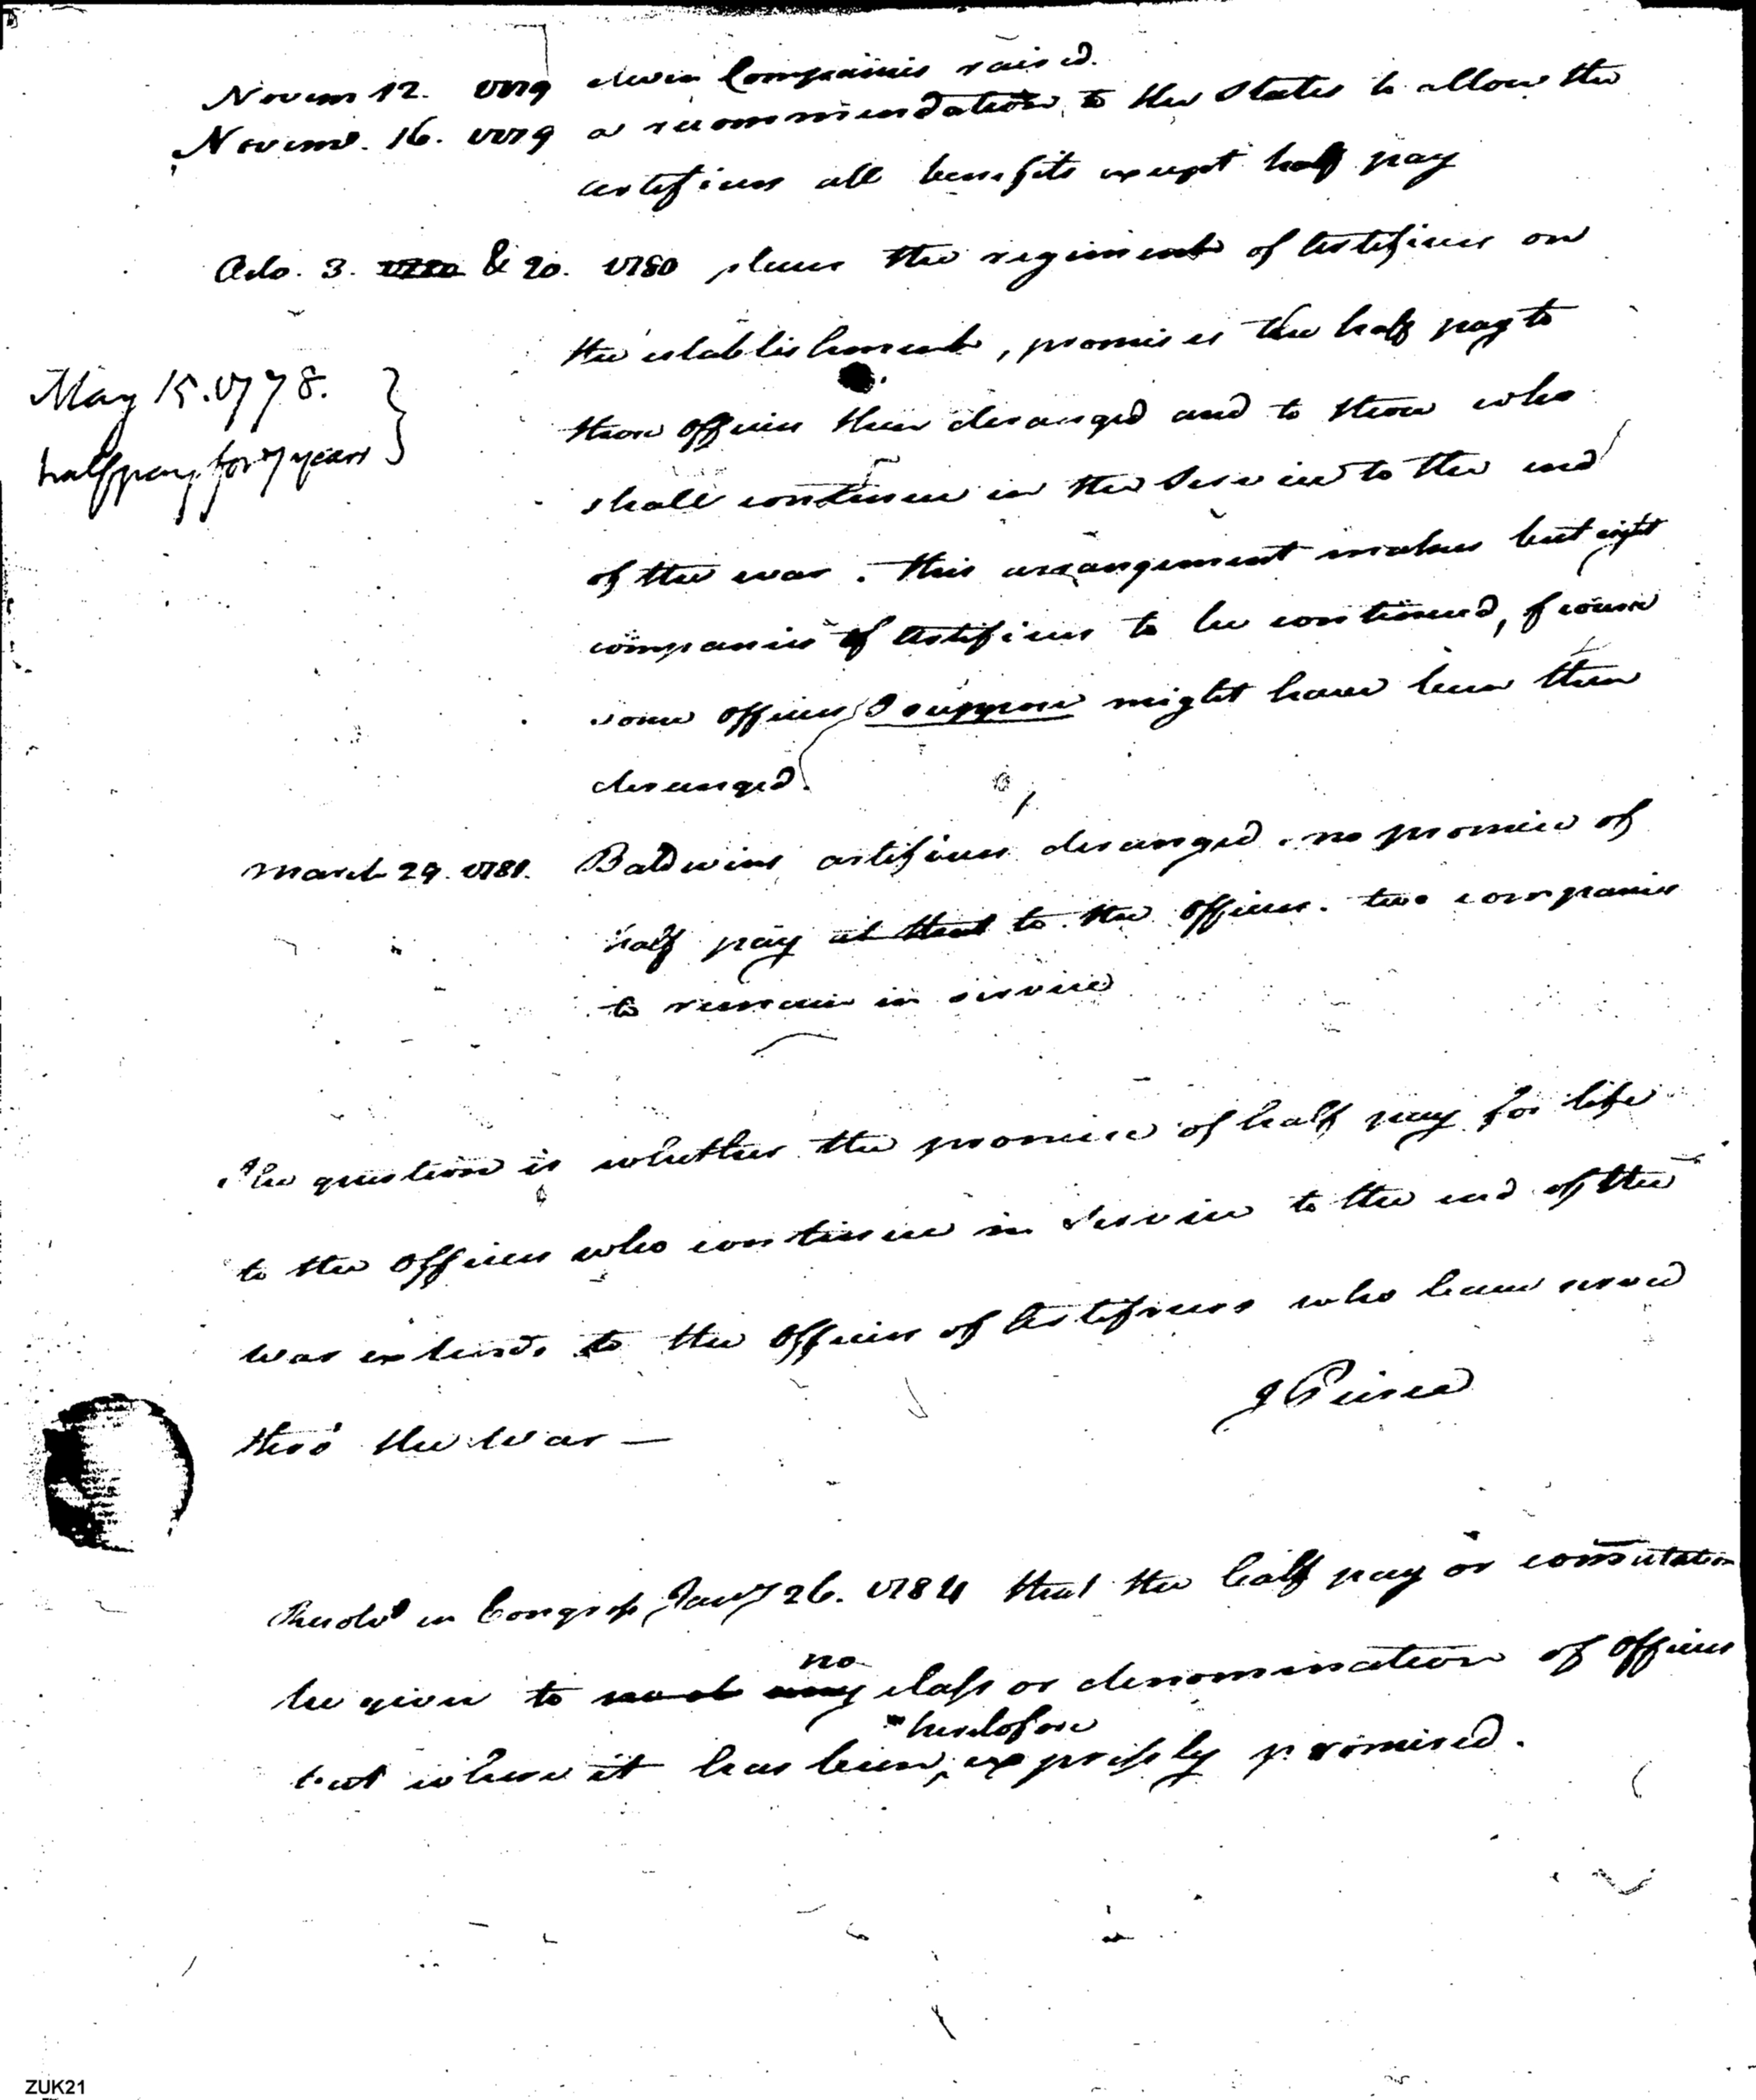 Novem 12. 1779 eleven Companies raised.
Novem. 16. 1779 a recommendation to the States to allow the
artificers all benefits except half pay
Octo. 3. 1780 & 20. 1780 places the regiment of Artificers on
the establishment, promises the half pay to
May 15. 1778.
half pay for 7 years
those officers then deranged and to those who
shall continue in the Service to the end
of the war. this arrangement makes but eight
companies of Artificers to be continued, of course
some officers I suppose might have been then
deranged.
March 29. 1781. Baldwins artificers deranged. no promise of
half pay at that to the officers. two companies
to remain in service
The question is whether the promise of half pay for life
to the officers who continue in Service to the end of the
War extends to the Officers of Artificers who have served
thro' the War —
J Peirce
Resolvd in Congress Jany 26. 1784 that the half pay or comutation
no
be given to any class or denomination of officers
heretofore
but where it has been expressly promised.
ZUK21